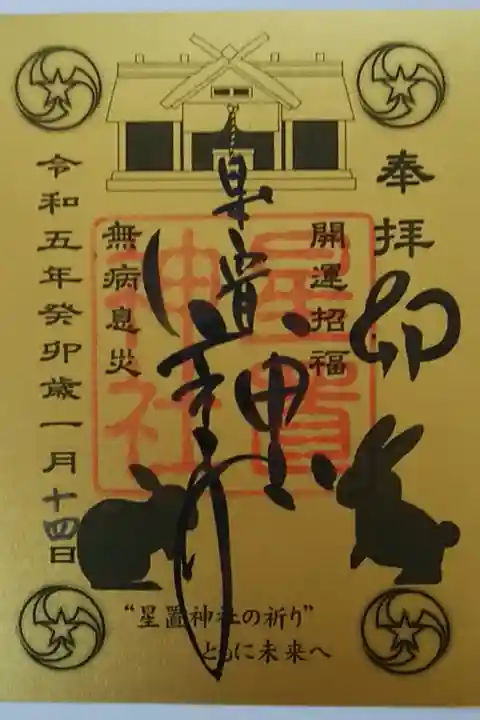 奉拝
卯
開運招福
星置
神社
無病息災
令和五年癸卯歳一月十四日
“星置神社の祈り”
ともに未来へ